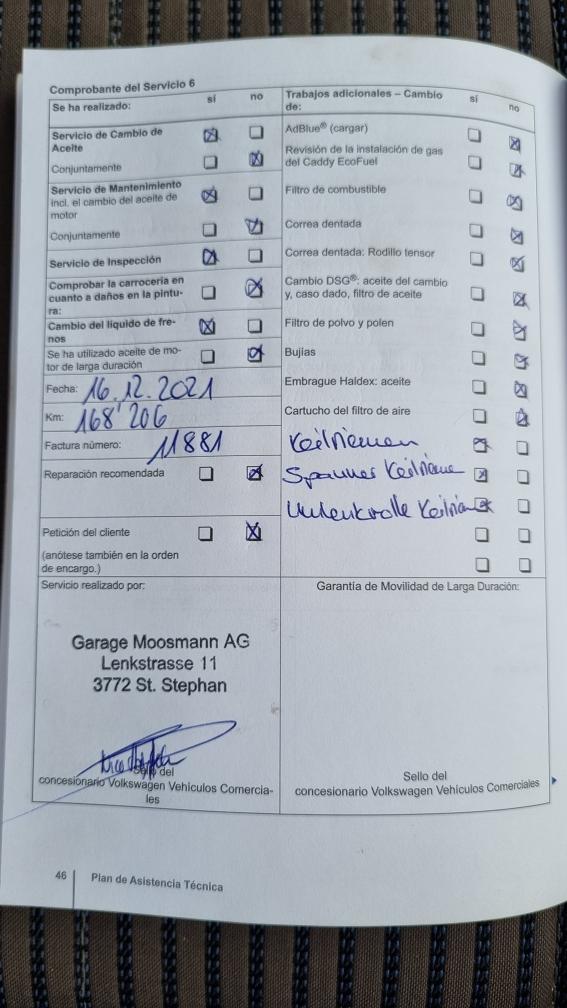 Comprobante del Servicio 6
Se ha realizado:
sí
no
Servicio de Cambio de
Aceite
Conjuntamente
Servicio de Mantenimiento
incl. el cambio del aceite de
motor
Conjuntamente
Servicio de Inspección
Comprobar la carrocería en
cuanto a daños en la pintu-
ra:
Cambio del líquido de fre-
nos
Se ha utilizado aceite de mo-
tor de larga duración
Fecha: 16.12.2021
Km: 168'206
Factura número: 11881
Reparación recomendada
Petición del cliente
(anótese también en la orden
de encargo.)
Servicio realizado por:
Garage Moosmann AG
Lenkstrasse 11
3772 St. Stephan
Sello del
concesionario Volkswagen Vehículos Comercia-
les
Trabajos adicionales – Cambio
de:
sí
no
AdBlue® (cargar)
Revisión de la instalación de gas
del Caddy EcoFuel
Filtro de combustible
Correa dentada
Correa dentada: Rodillo tensor
Cambio DSG®: aceite del cambio
y, caso dado, filtro de aceite
Filtro de polvo y polen
Bujías
Embrague Haldex: aceite
Cartucho del filtro de aire
Keilriemen
Spanner Keilrieme
Umlenkrolle Keilriem
Garantía de Movilidad de Larga Duración:
Sello del
concesionario Volkswagen Vehículos Comerciales
46
Plan de Asistencia Técnica